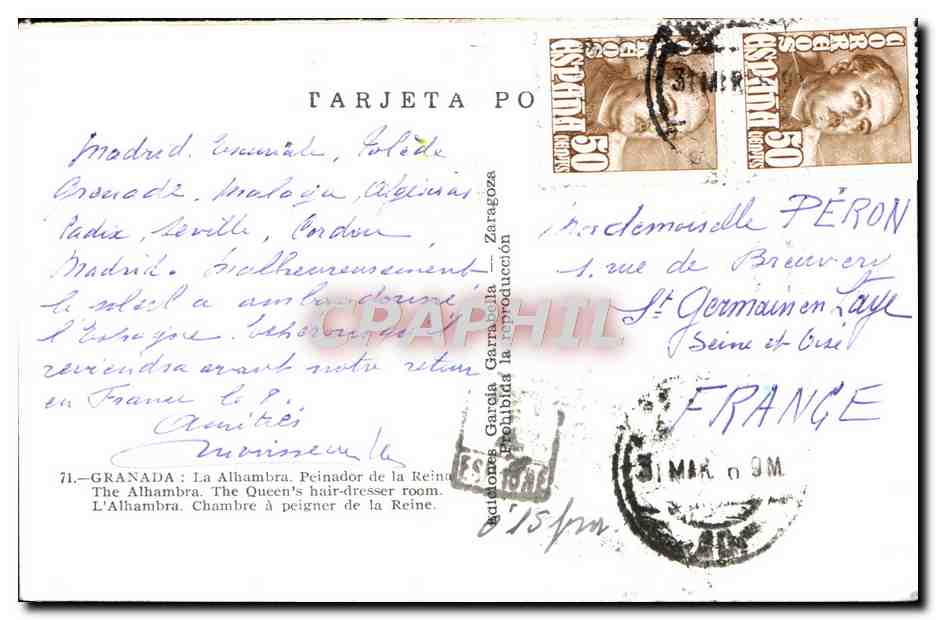 TARJETA PO
Madrid. Escuriale, Tolède
Grenade, Malaga, Algésiras
Cadix, Séville, Cordou
Madrid. Malheureusement
le soleil a ambandonné
l'Espagne. Esherons qu'il
reviendra avant notre retour
en France le 8.
Amitiés
71.—GRANADA: La Alhambra. Peinador de la Reina
The Alhambra. The Queen's hair-dresser room.
L'Alhambra. Chambre à peigner de la Reine.
Ediciones García Garrabella — Zaragoza
Prohibida la reproducción
CORREOS
ESPAÑA
50
CENTIMOS
CORREOS
ESPAÑA
50
CENTIMOS
31 MAR
Mademoiselle PÉRON
1, rue de Breuvery
St Germain en Laye
Seine et Oise
FRANCE
31 MAR 6 9M
0'15
CPAPHIL